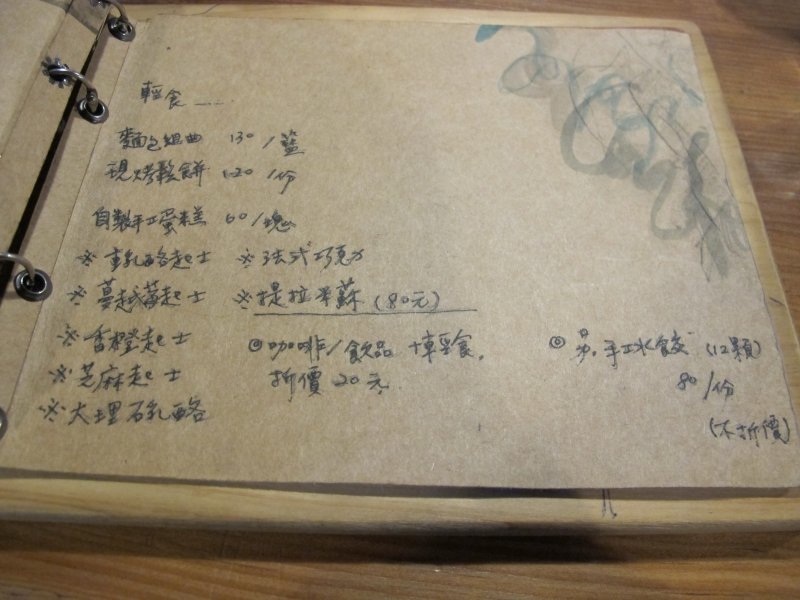 輕食……
麵包組曲 130/籃
現烤鬆餅 120/份
自製手工蛋糕 60/塊
※重乳酪起士 ※法式巧克力
※蔓越莓起士 ※提拉米蘇(80元)
※香橙起士
※芝麻起士
※大理石乳酪
◎咖啡/飲品+輕食,
折價20元
◎ 手工水餃(12顆)
80/份
(不折價)